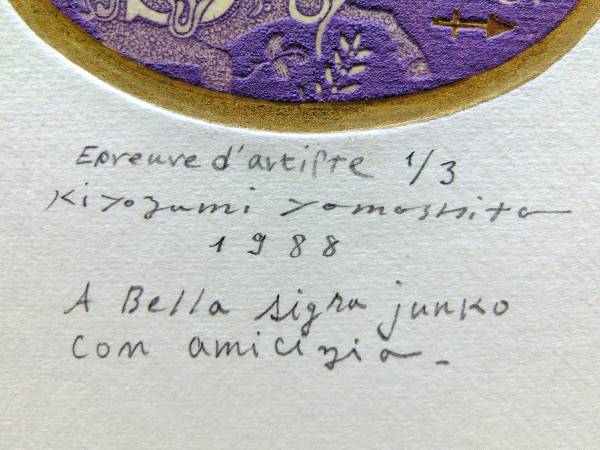 Epreuve d'artiste 1/3
Kiyozumi Yamashita
1988
A Bella sigra junko
con amicizia -